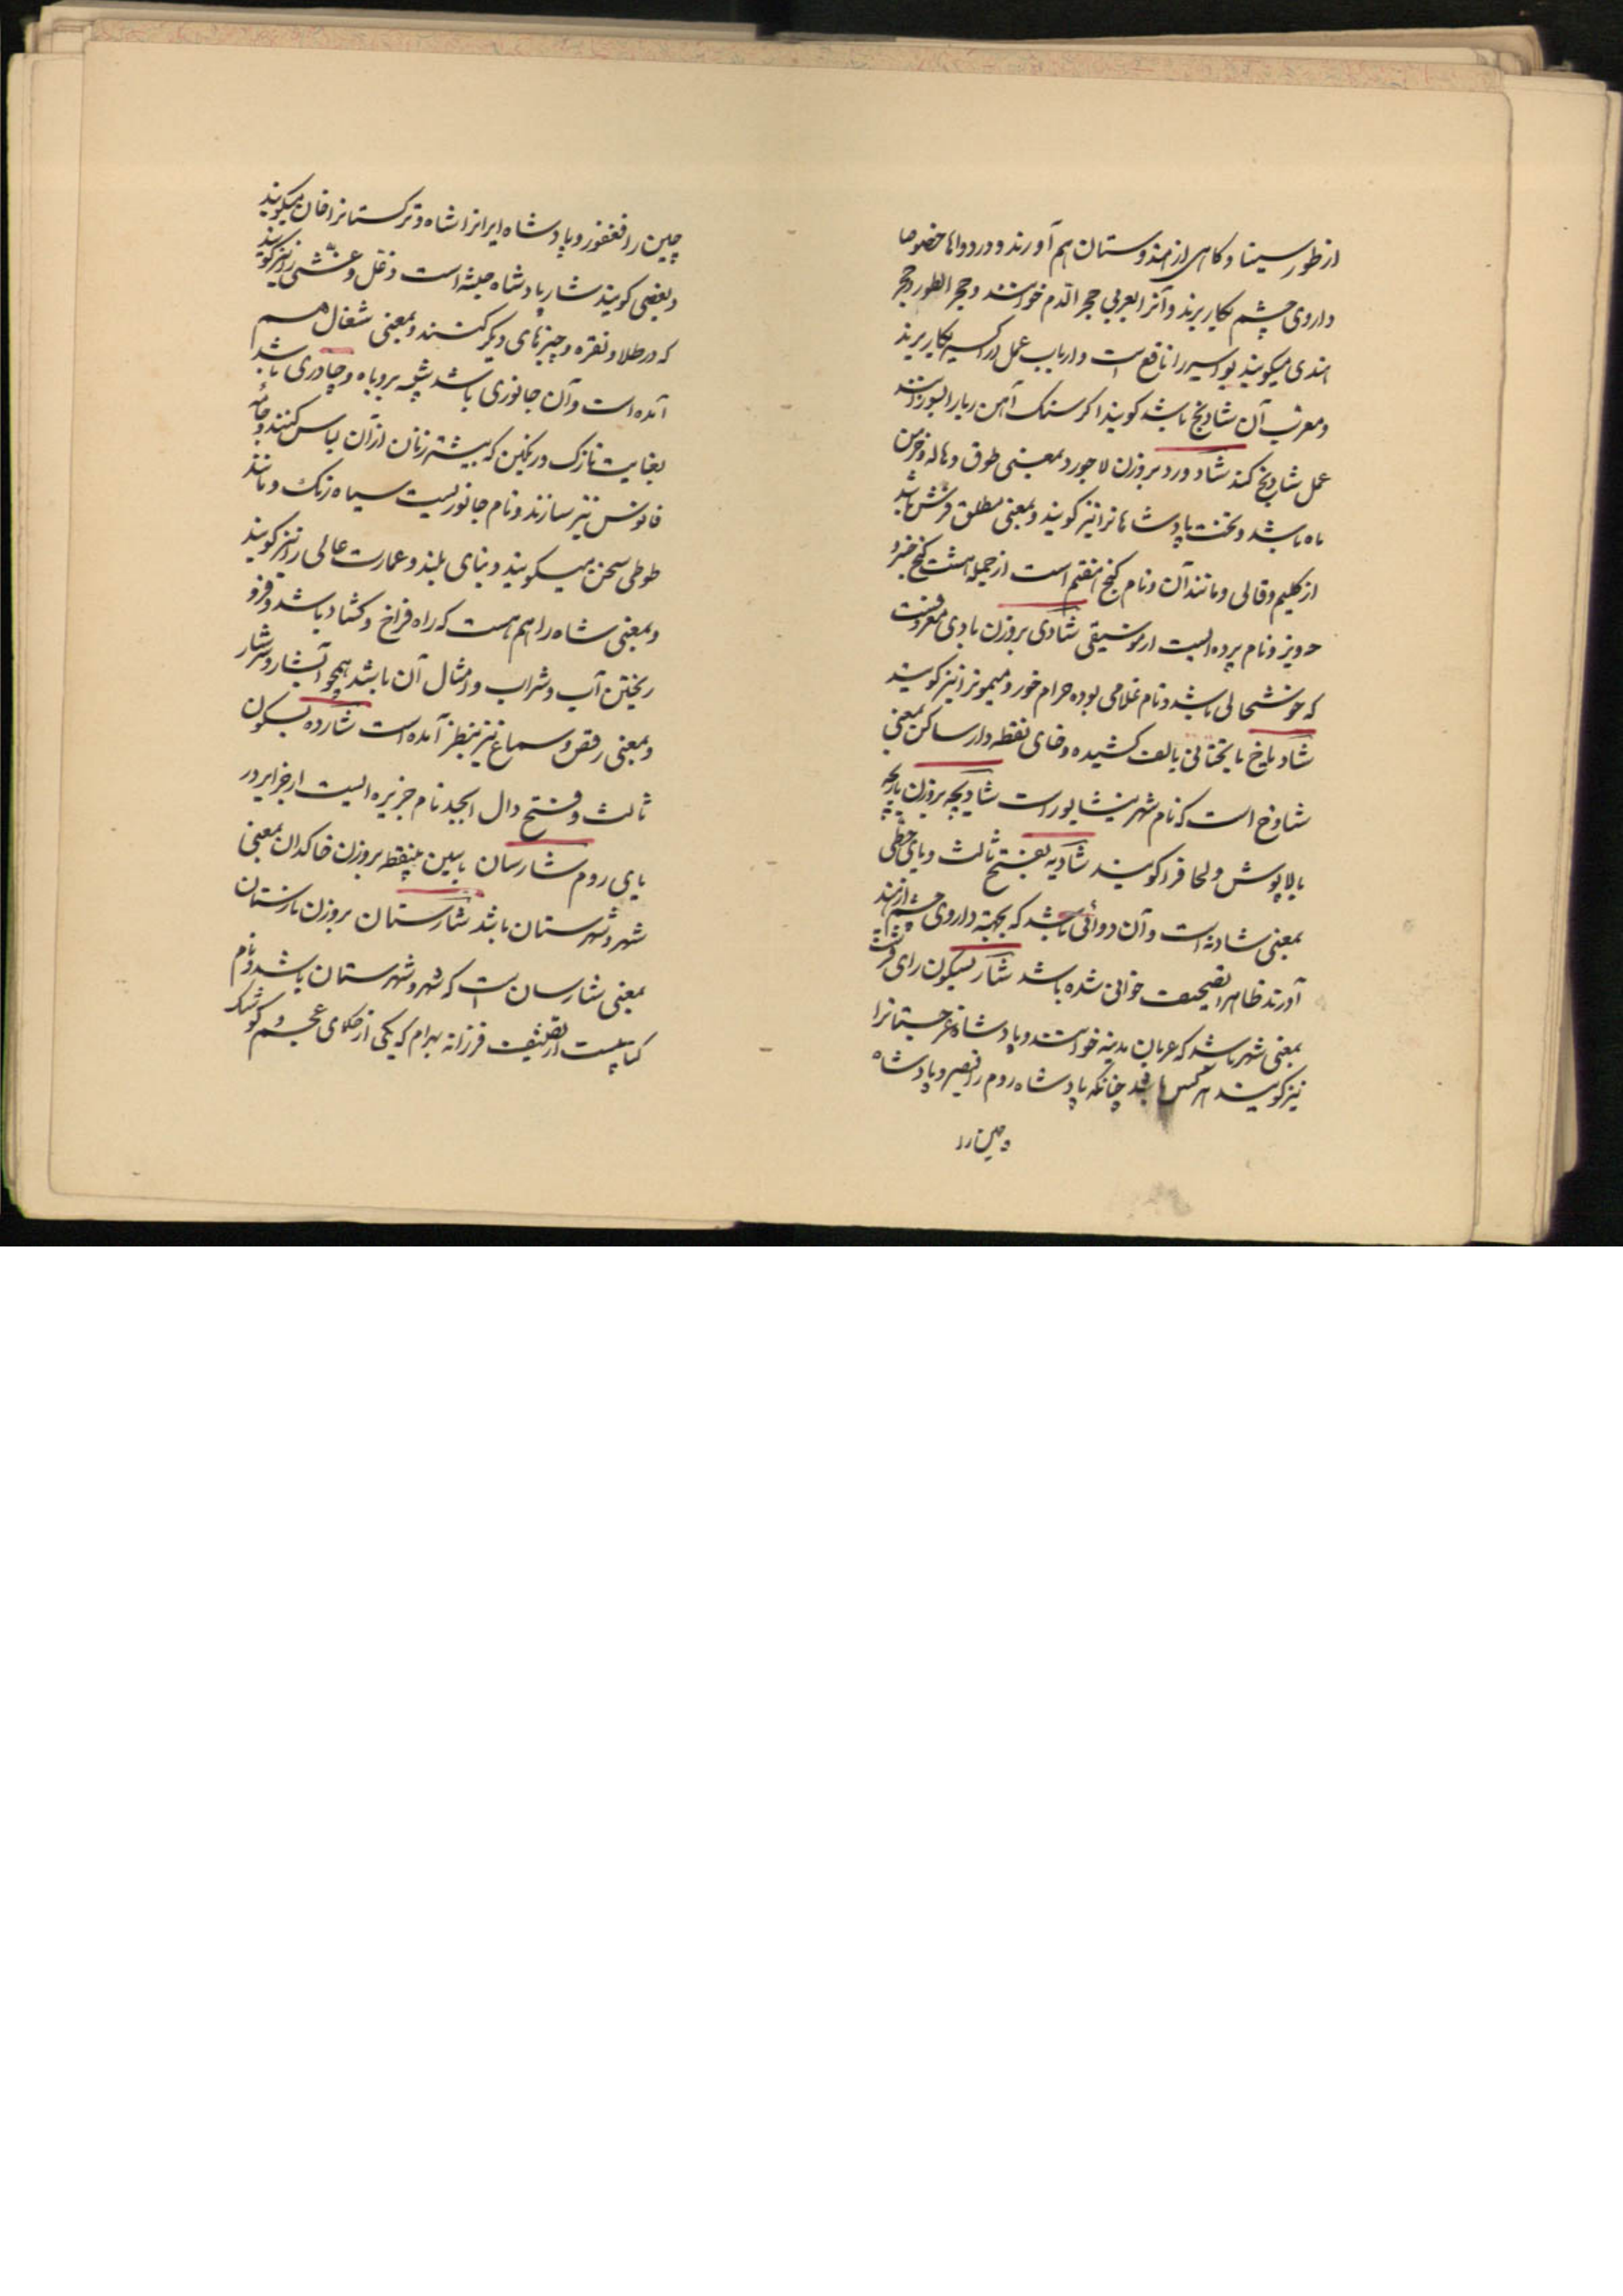 از طور سینا و کاهی از هندوستان هم آورند و در دواها خصوصا
داروی چشم بکار برند و آنرا بعربی حجر الدم خوانند و حجر الطور و حجر
هندی میگویند بواسیر را نافع است و ارباب عمل در اکسیر بکار برند
و معرب آن شادنج باشد گویند اگر سنک آهن ربا را بسوزانند
عمل شادنج کند شاد ورد بروزن لاجورد بمعنی طوق و هاله و خرمن
ماه باشد و تخت پادشاهانرا نیز گویند و بمعنی مطلق فرش باشد
از کلیم و قالی و مانند آن و نام کنج هفتم است از جمله هشت کنج خسرو
پرویز و نام پرده ایست از موسیقی شادی بروزن بادی معروفست
که خوشحالی باشد و نام غلامی بوده حرام خور و میمونرا نیز گویند
شادیاخ با یختانی بالف کشیده و خای نقطه دار ساکن بمعنی
شاوخ است که نام شهر نیشابور است شادیچه بروزن پارچه
بالاپوش و لحاف را گویند شادیه بفتح ثالث و یای حطی
بمعنی شادنه است و آن دوائی باشد که بجهة داروی چشم از هند
آورند ظاهرا تصحیف خوانی شده باشد شار بسکون رای قرشت
بمعنی شهر باشد که عربان مدینه خوانند و پادشاه غرجستانرا
نیز گویند هر کس باشد چنانکه پادشاه روم را قیصر و پادشاه
چین را
چین را فغفور و پادشاه ایرانرا شاه و ترکستانرا خان میگویند
و بعضی گویند شار پادشاه حبشه است و غل و غشی را نیز گویند
که در طلا و نقره و چیزهای دیگر کنند و بمعنی شغال هم
آمده است و آن جانوری باشد شبیه بروباه و چادری باشد
بغایت نازک و رنکین که بیشتر زنان ازان لباس کنند و جامه
فانوس نیز سازند و نام جانوریست سیاه رنک و مانند
طوطی سخن میگویند و بنای بلند و عمارت عالی را نیز گویند
و بمعنی شاه راه هم هست که راه فراخ و کشاد باشد و فرو
ریختن آب و شراب و امثال آن باشد همچو آبشار و سرشار
و بمعنی رقص و سماع نیز بنظر آمده است شارده بسکون
ثالث و فتح دال ابجد نام جزیره ایست از جزایر در
یای روم شارسان با سین بینقطه بروزن خاکدان بمعنی
شهر و شهرستان باشد شارستان بروزن بارستان
بمعنی شارسان است که شهر و شهرستان باشد و نام
کتابیست از تصنیف فرزانه بهرام که یکی از حکمای عجم و کوشک